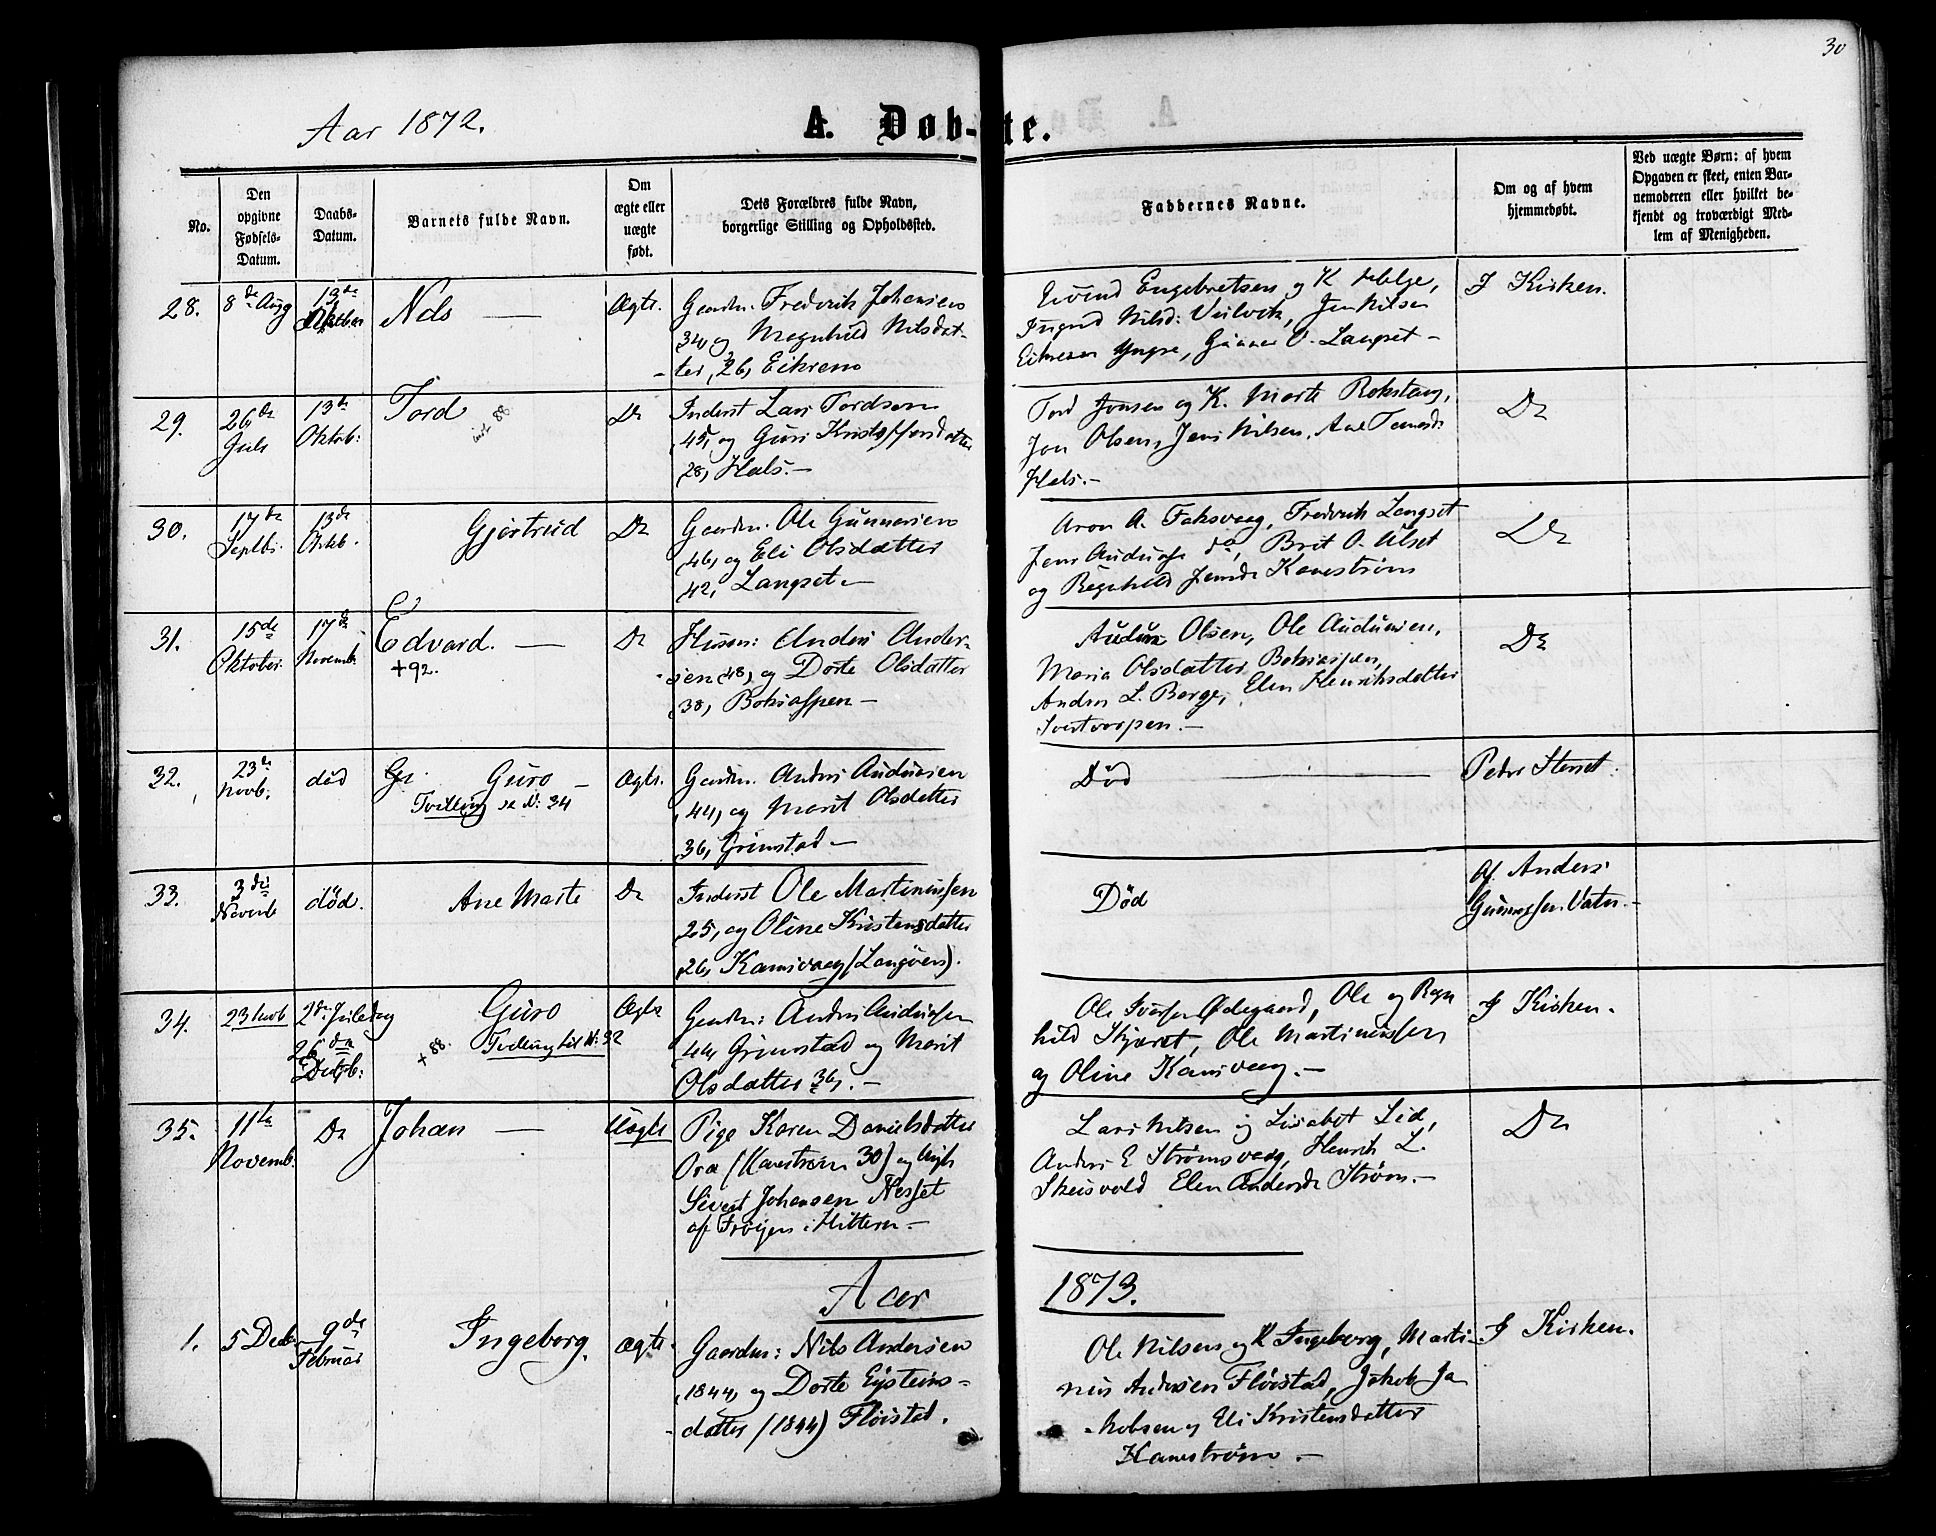 30
Aar 1872.
A. Døb-te.
No.
Den opgivne Fødsels-Datum.
Daabs-Datum.
Barnets fulde Navn.
Om ægte eller uægte født.
Dets Forældres fulde Navn,
borgerlige Stilling og Opholdssted.
Faddernes Navne.
Om og af hvem
hjemmedøbt.
Ved uægte Børn: af hvem
Opgaven er skeet, enten Bar-
nemoderen eller hvilket be-
kjendt og troværdigt Med-
lem af Menigheden.
28. 8de Aug 13de Oktber Nels — Ægte.
Gaardm. Fredrik Johansen
34, og Magnhild Nilsdat-
ter, 26, Eikrem
Eivind Engebretsen og K Helge,
Ingrid Nilsd: Jen Nilsen
Eikrem Yngre, Gunner O. Langset —
I Kirken.
29. 26de Juli 13de Oktob: Tord Do
Inderst Lars Tordsen
45, og Guri Kristoffersdatter
28, Hals. —
Tord Jonsen og K. Marte Rokstang,
Jon Olsen, Jens Nilsen,
Hals. —
Do
30. 17de Septbr. 13de Oktb. Gjertrud Do
Gaardm. Ole Gunnersen
46, og Eli Olsdatter
42, Langset —
Aron A. Foksvaag, Fredrik Langset
Jens do, Brit O. Ulset
og Ragnhild Jensd: Kanestrøm
Do
31. 15de Oktober. 17de Novemb. Edvard. — Do
+92.
Husm: Anders Ander-
sen 48, og Dorte Olsdatter
38, Boksaspen —
Audun Olsen, Ole Audunsen,
Maria Olsdatter Boksaspen,
Anders L. Berge, Elen Henriksdatter
—
Do
32. 23de Novb. død Guro — Ægte.
Tvilling se N: 34
Gaardm. Anders Audunsen
44, og Marit Olsdatter
36, Grimstad —
Død — Peder Storset.
33. 3die Novemb død. Ane Marte Do
Inderst Ole Martinussen
25, og Oline Kristensdatter
26, Kamsvaag (Langøen).
Død
Af Anders
Gunnersen Vatn. —
34. 23 Novb 2den Juledag Guro Ægte
26de Decb: +88. Tvilling til N: 32
Gaardm: Anders Audunsen
44, Grimstad og Marit
Olsdatter 36. —
Ole Iversen Ødegaard, Ole og Ragn
hild Skjæret, Ole Martinussen
og Oline Kamsvaag. —
I Kirken.
35. 11te Novemb. Do Johan — Uægte
Pige Karen Danielsdatter
Ora (Kanestrøm 30) og
Sivert Johansen Nesset
af Frøijen i Hittern —
Lars Nilsen og Lisabet Lid,
Anders E Strømsvaag, Henrik L.
Skeisvold Elen Andersd: Strøm. —
Do
Aar 1873.
1. 5 Decb. 9de Februar Ingeborg. Ægte.
Gaardm: Nils Andersen
1844, og Dorte Eijsteins-
datter (1844) Fløistad.
Ole Nilsen og K Ingeborg, Marti-
nus Andersen Fløistad, Jakob Ja
kobsen og Eli Kristensdatter
Kanestrøm —
I Kirken.